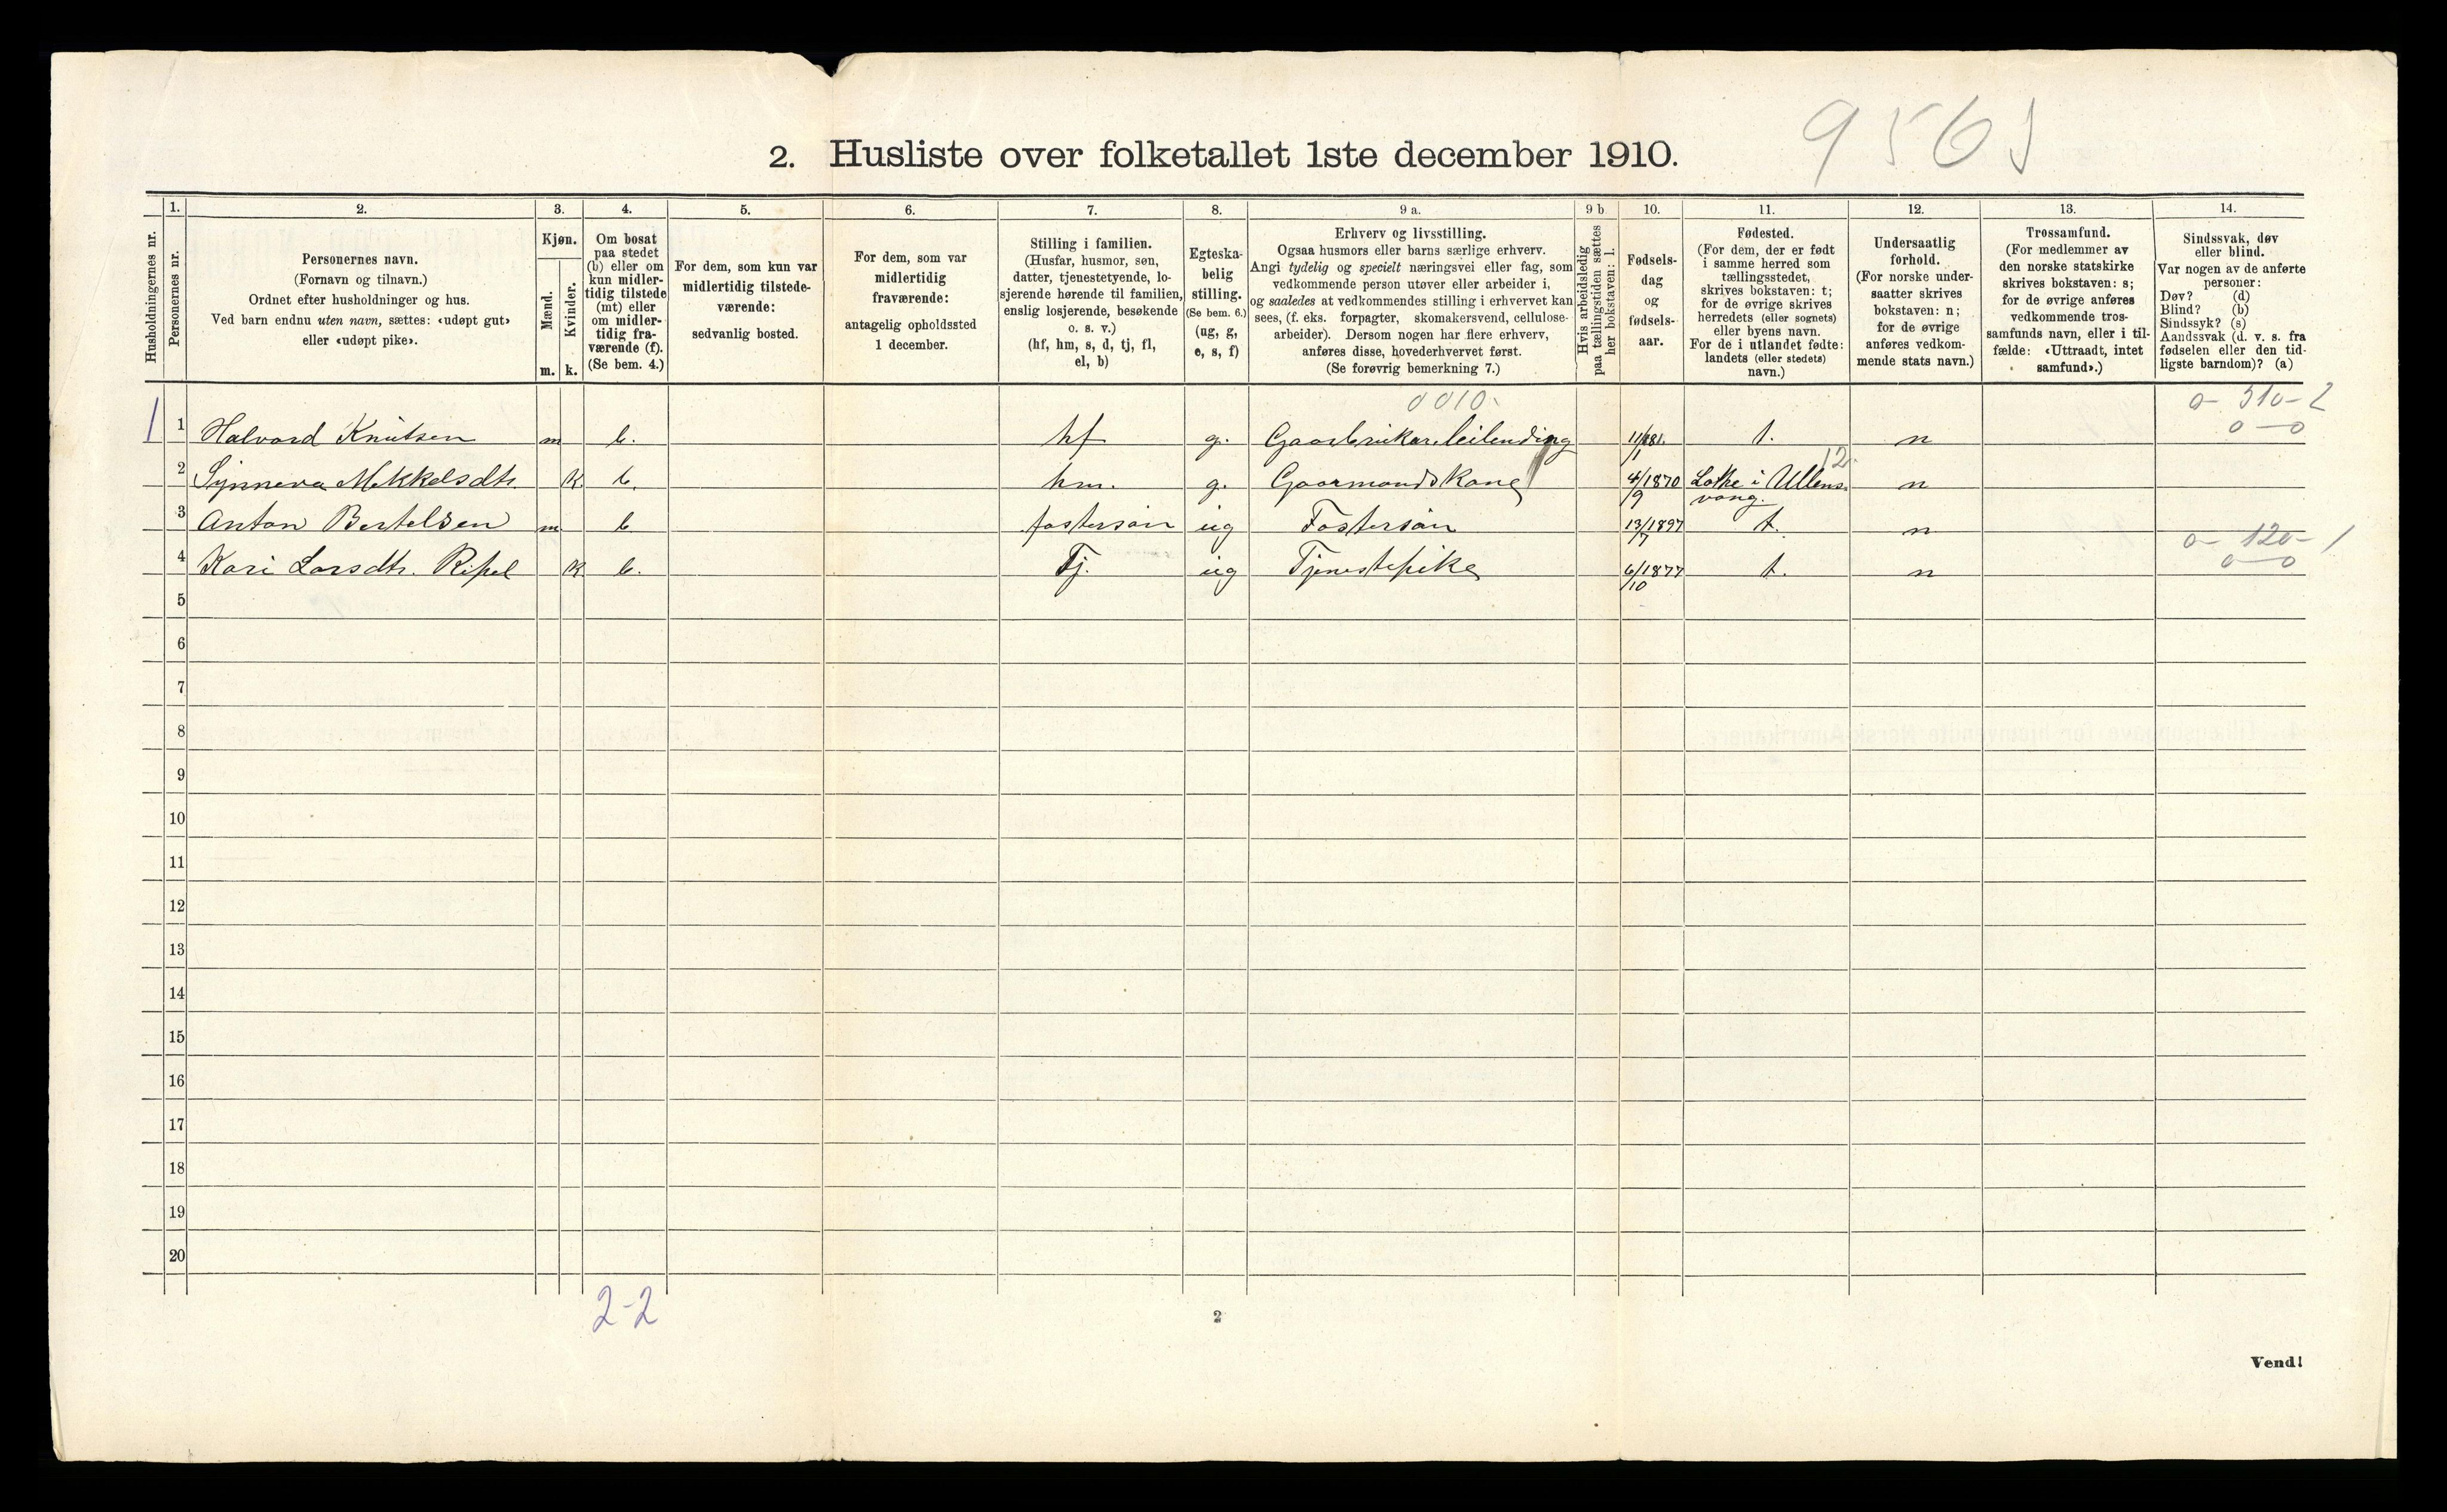 9565
2. Husliste over folketallet 1ste december 1910.
Husholdningernes nr.
1.
Personernes nr.
2.
Personernes navn.
(Fornavn og tilnavn.)
Ordnet efter husholdninger og hus.
Ved barn endnu uten navn, sættes: «udøpt gut»
eller «udøpt pike».
3.
Kjøn.
Mænd.
Kvinder.
m. k.
4.
Om bosat
paa stedet
(b) eller om
kun midler-
tidig tilstede
(mt) eller
om midler-
tidig fra-
værende (f).
(Se bem. 4.)
5.
For dem, som kun var
midlertidig tilstede-
værende:
sedvanlig bosted.
6.
For dem, som var
midlertidig
fraværende:
antagelig opholdssted
1 december.
7.
Stilling i familien.
(Husfar, husmor, søn,
datter, tjenestetyende, lo-
sjerende hørende til familien,
enslig losjerende, besøkende
o. s. v.)
(hf, hm, s, d, tj, fl,
el, b)
8.
Egteska-
belig
stilling.
(Se bem. 6.)
(ug, g,
e, s, f)
9 a.
Erhverv og livsstilling.
Ogsaa husmors eller barns særlige erhverv.
Angi tydelig og specielt næringsvei eller fag, som
vedkommende person utøver eller arbeider i,
og saaledes at vedkommendes stilling i erhvervet kan
sees, (f. eks. forpagter, skomakersvend, cellulose-
arbeider). Dersom nogen har flere erhverv,
anføres disse, hovederhvervet først.
(Se forøvrig bemerkning 7.)
9 b
Hvis arbeidsledig
paa tællingstiden sættes
her bokstaven: l.
10.
Fødsels-
dag
og
fødsels-
aar.
11.
Fødested.
(For dem, der er født
i samme herred som
tællingsstedet,
skrives bokstaven: t;
for de øvrige skrives
herredets (eller sognets)
eller byens navn.
For de i utlandet fødte:
landets (eller stedets)
navn.)
12.
Undersaatlig
forhold.
(For norske under-
saatter skrives
bokstaven: n;
for de øvrige
anføres vedkom-
mende stats navn.)
13.
Trossamfund.
(For medlemmer av
den norske statskirke
skrives bokstaven: s;
for de øvrige anføres
vedkommende tros-
samfunds navn, eller i til-
fælde: «Uttraadt, intet
samfund».)
14.
Sindssvak, døv
eller blind.
Var nogen av de anførte
personer:
Døv? (d)
Blind? (b)
Sindssyk? (s)
Aandssvak (d. v. s. fra
fødselen eller den tid-
ligste barndom)? (a)
0010. 0-510-2
1 1 Halvard Knutsen m b. hf g. Gaarbrukar. leilending 11/1 881. t. n 0-0
12.
2 Synneva Mikkelsdtr. k b. hm. g. Gaarmandskone 4/9 1870 Lothe i Ullens- n
vang.
3 Anton Bertelsen m b fostersøn ug Fostersøn 13/7 1897 t. n
0-120-1
4 Kari Larsdtr. Ripel k b. Tj. ug Tjenestepike 6/10 1877 t. n 0-0
5
6
7
8
9
10
11
12
13
14
15
16
17
18
19
20
2-2
2
Vend!